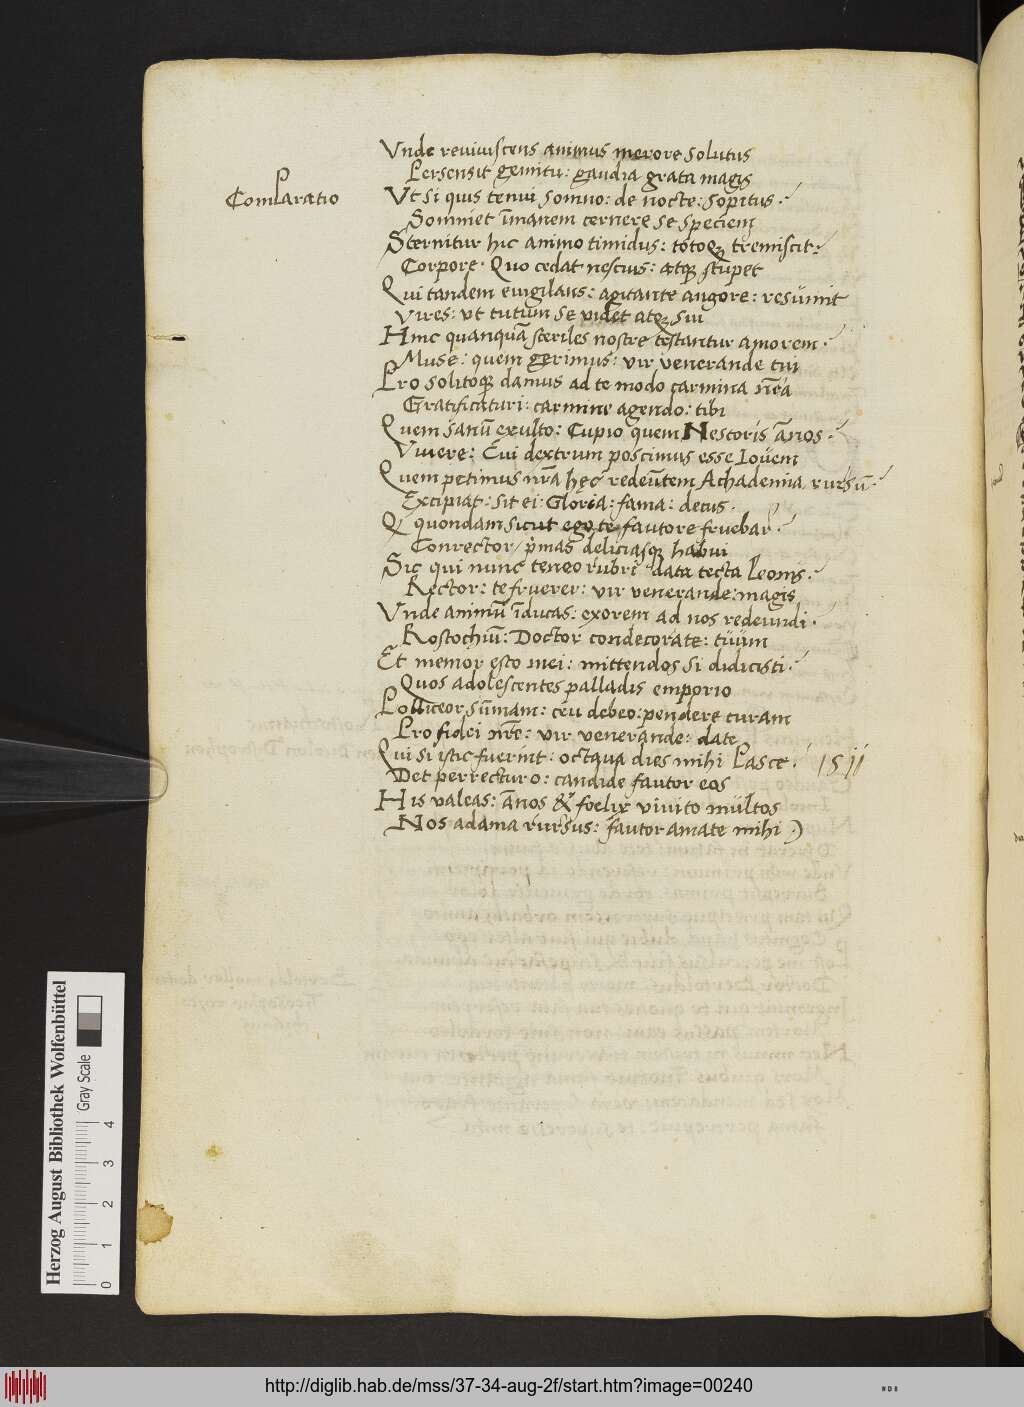 Vnde reuiuiscens animus merore solutus
Persensit gemitu: gaudia grata magis
Comparatio
Vt si quis tenui somno: de nocte: sopitus.
Somniet īmanem cernere se speciem
Sternitur hic animo timidus: totoqȝ tremiscit.
Corpore. Quo cedat nescius: atqȝ stupet
Qui tandem euigilans: agitante angore: resumit
Vires: ut tutum se videt atqȝ sui
Hinc quanquā steriles nostre testantur amorem.
Muse: quem gerimus: vir venerande tui
Pro solitoqȝ damus ad te modo carmina nr̄a
Gratificaturi: carmine agendo: tibi
Quem sanū exulto: Cupio quem Nestoris ānos.
Viuere: Cui dextrum poscimus esse Iouem
Quem petimus nr̄a hęc redeūtem Achademia rursū.
Excipiat: sit ei: Gloria: fama: decus.
Qȝ quondam sicut ego te fautore fruebar.
Conrector/ p̄mas deliciasqȝ habui
Sic qui nunc teneo rubri data tecta Leonis.
Rector: te fruerer: vir venerande: magis
Vnde animū īducas: exorem ad nos redeundi.
Rostochiū: Doctor condecorate: tuum
Et memor esto mei: mittendos si didicisti.
Quos adolescentes palladis emporio
Polliceor sūmam: ceu debeo: pendere curam
Pro fidei nr̄e: vir venerande: date
Qui si istic fuerint: octaua dies mihi Pasce. 1511
Det perrecturo: candide fautor eos
His valeas: ānos & foelix viuito multos
Nos adama rursus: fautor amate mihi
Herzog August Bibliothek Wolfenbüttel
Gray Scale
0 1 2 3 4
http://diglib.hab.de/mss/37-34-aug-2f/start.htm?image=00240